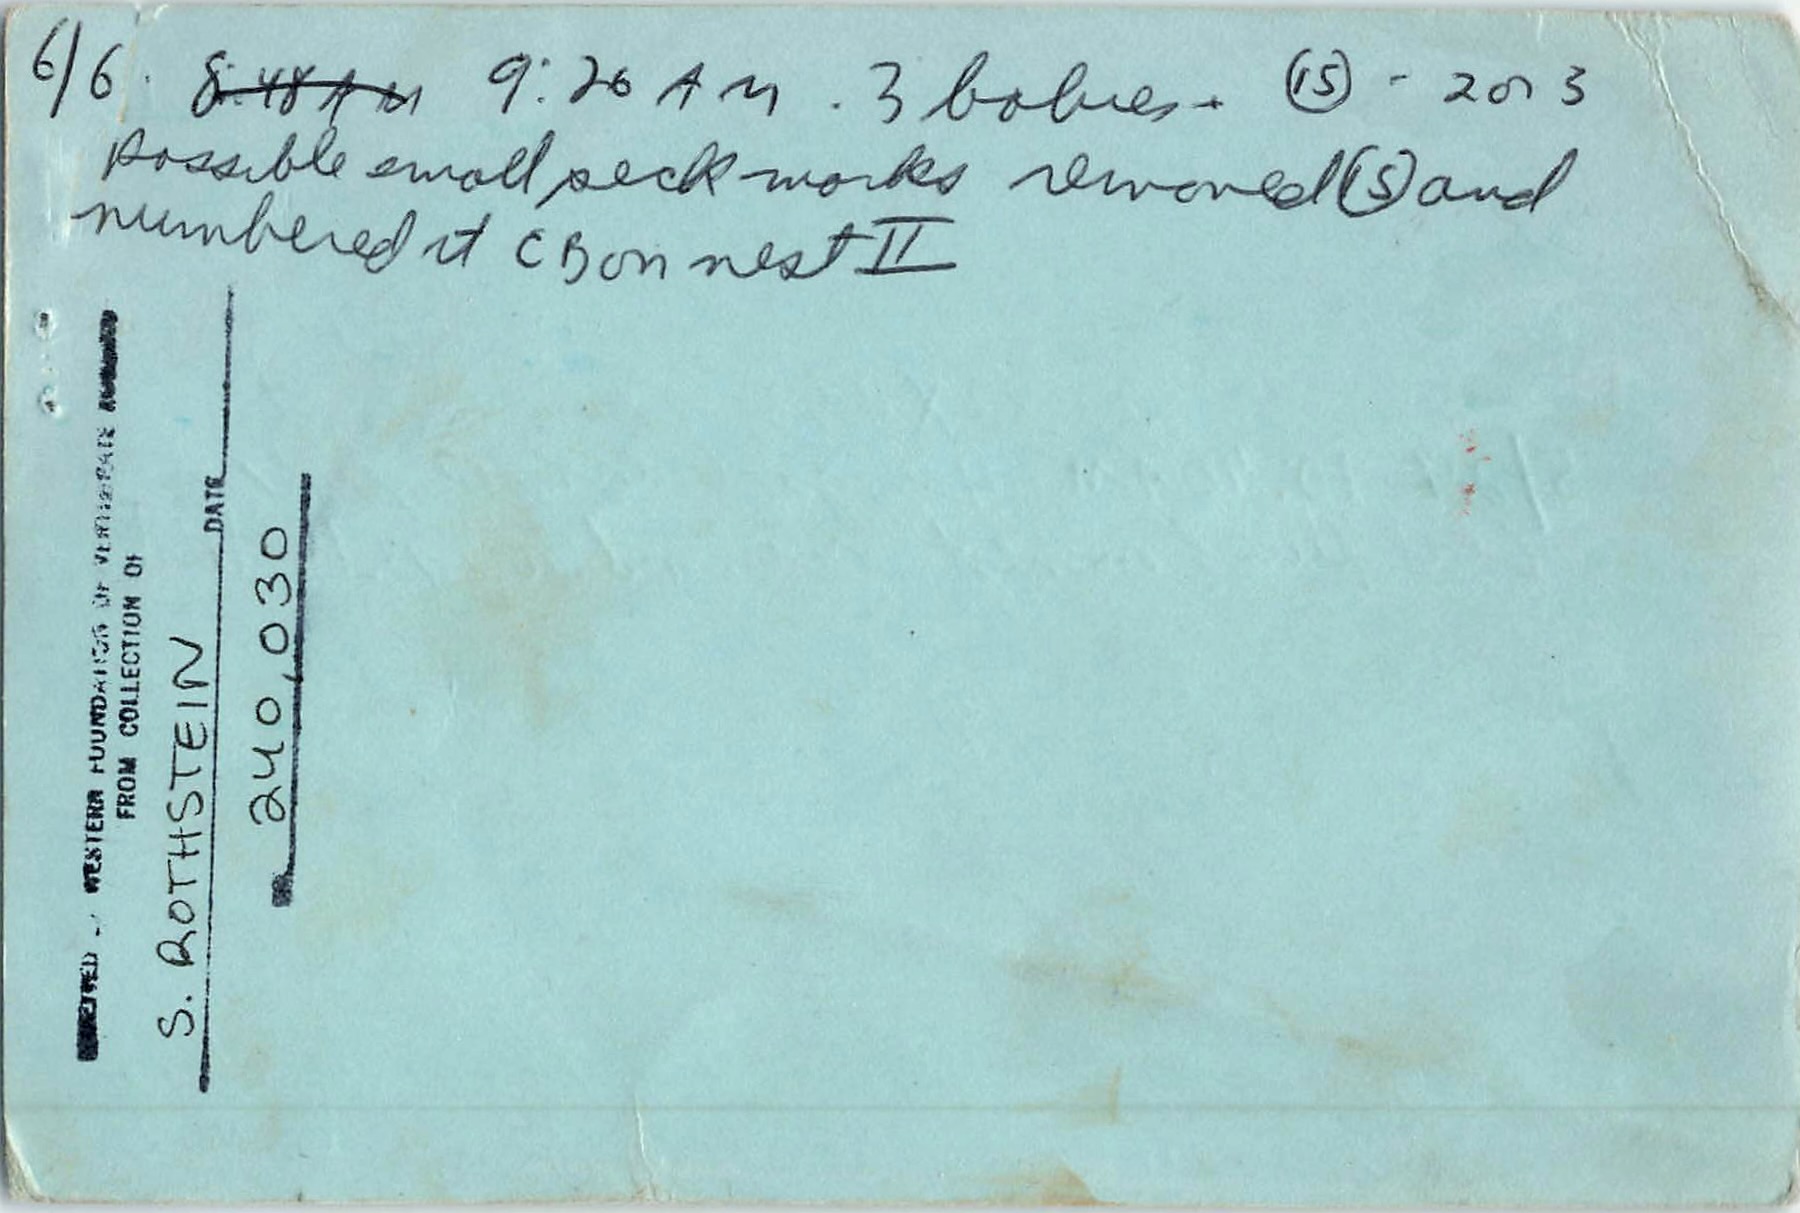 6/6. 8:48 AM 9:26 AM. 3 babies. (15) - 2 or 3
possible small peck marks removed (15) and
numbered it CB on nest II
WESTERN FOUNDATION OF VERTEBRATE
FROM COLLECTION OF
S. ROTHSTEIN DATE
240,030